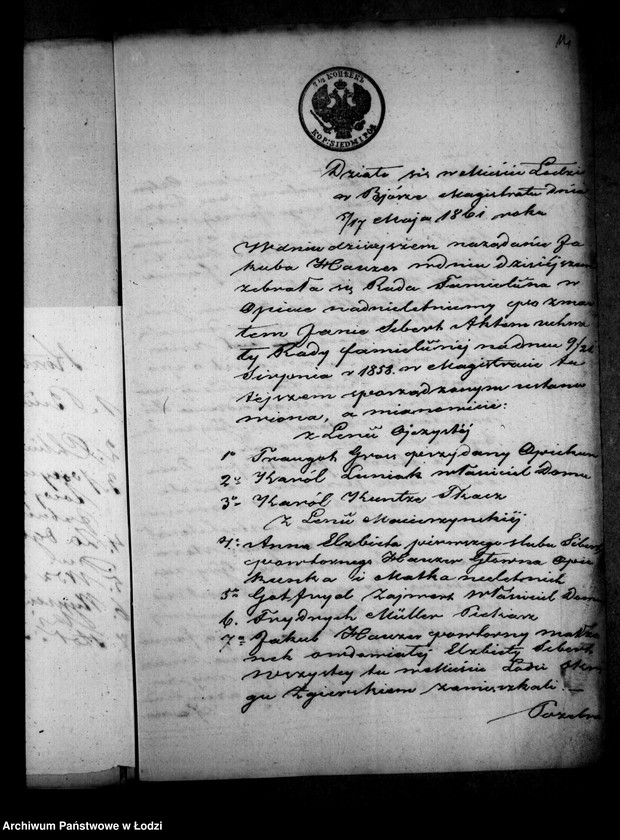 7½ КОПѢЕКЪ
KOP: SIEDM I PÓŁ
Działo się w Mieście Łodzi
w Biórze Magistratu dnia
5/17 Maja 1861 roku
W dniu dzisiejszem na żądanie Ja
kuba Hauzer w dniu dzisiejszem
zebrała się Rada Familijna w
Opiece nad nieletniemy po zmar
łem Janie Sebert Aktem uchwa
ły Rady familijnej na dniu 9/21
Sierpnia r 1858 w Magistracie tu
tejszem sporządzonym ustano
wiona, a mianowicie:
z Lenii Ojczystéj
1o Traugot Gros przydany Opiekun
2o Karól Luniak właściciel Domu
3o Karól Kuntze Tkacz
Z Lenii Macierzyńskiéj
4o Anna Elzbieta pierwszego slubu Sebert
powtornego Hauzer Głowna Opie
kunka i Matka nieletnich
5o Gotfryd Zajmert właściciel Domu
6. Frydrych Müller Piekarz
7o Jakub Hauzer powtorny małżo
nek Elzbiety Sebert
wszyscy tu w Mieście Łodzi Okrę
gu Zgierskiem zamieszkali.—
Archiwum Państwowe w Łodzi